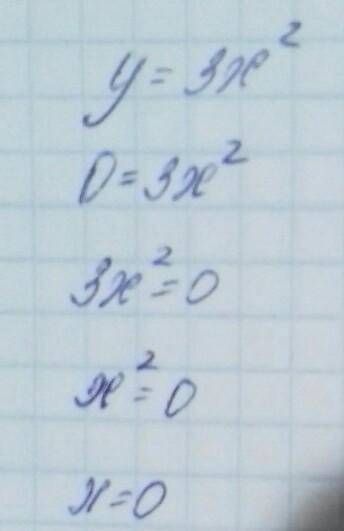 y = 3x²
0 = 3x²
3x² = 0
x² = 0
x = 0